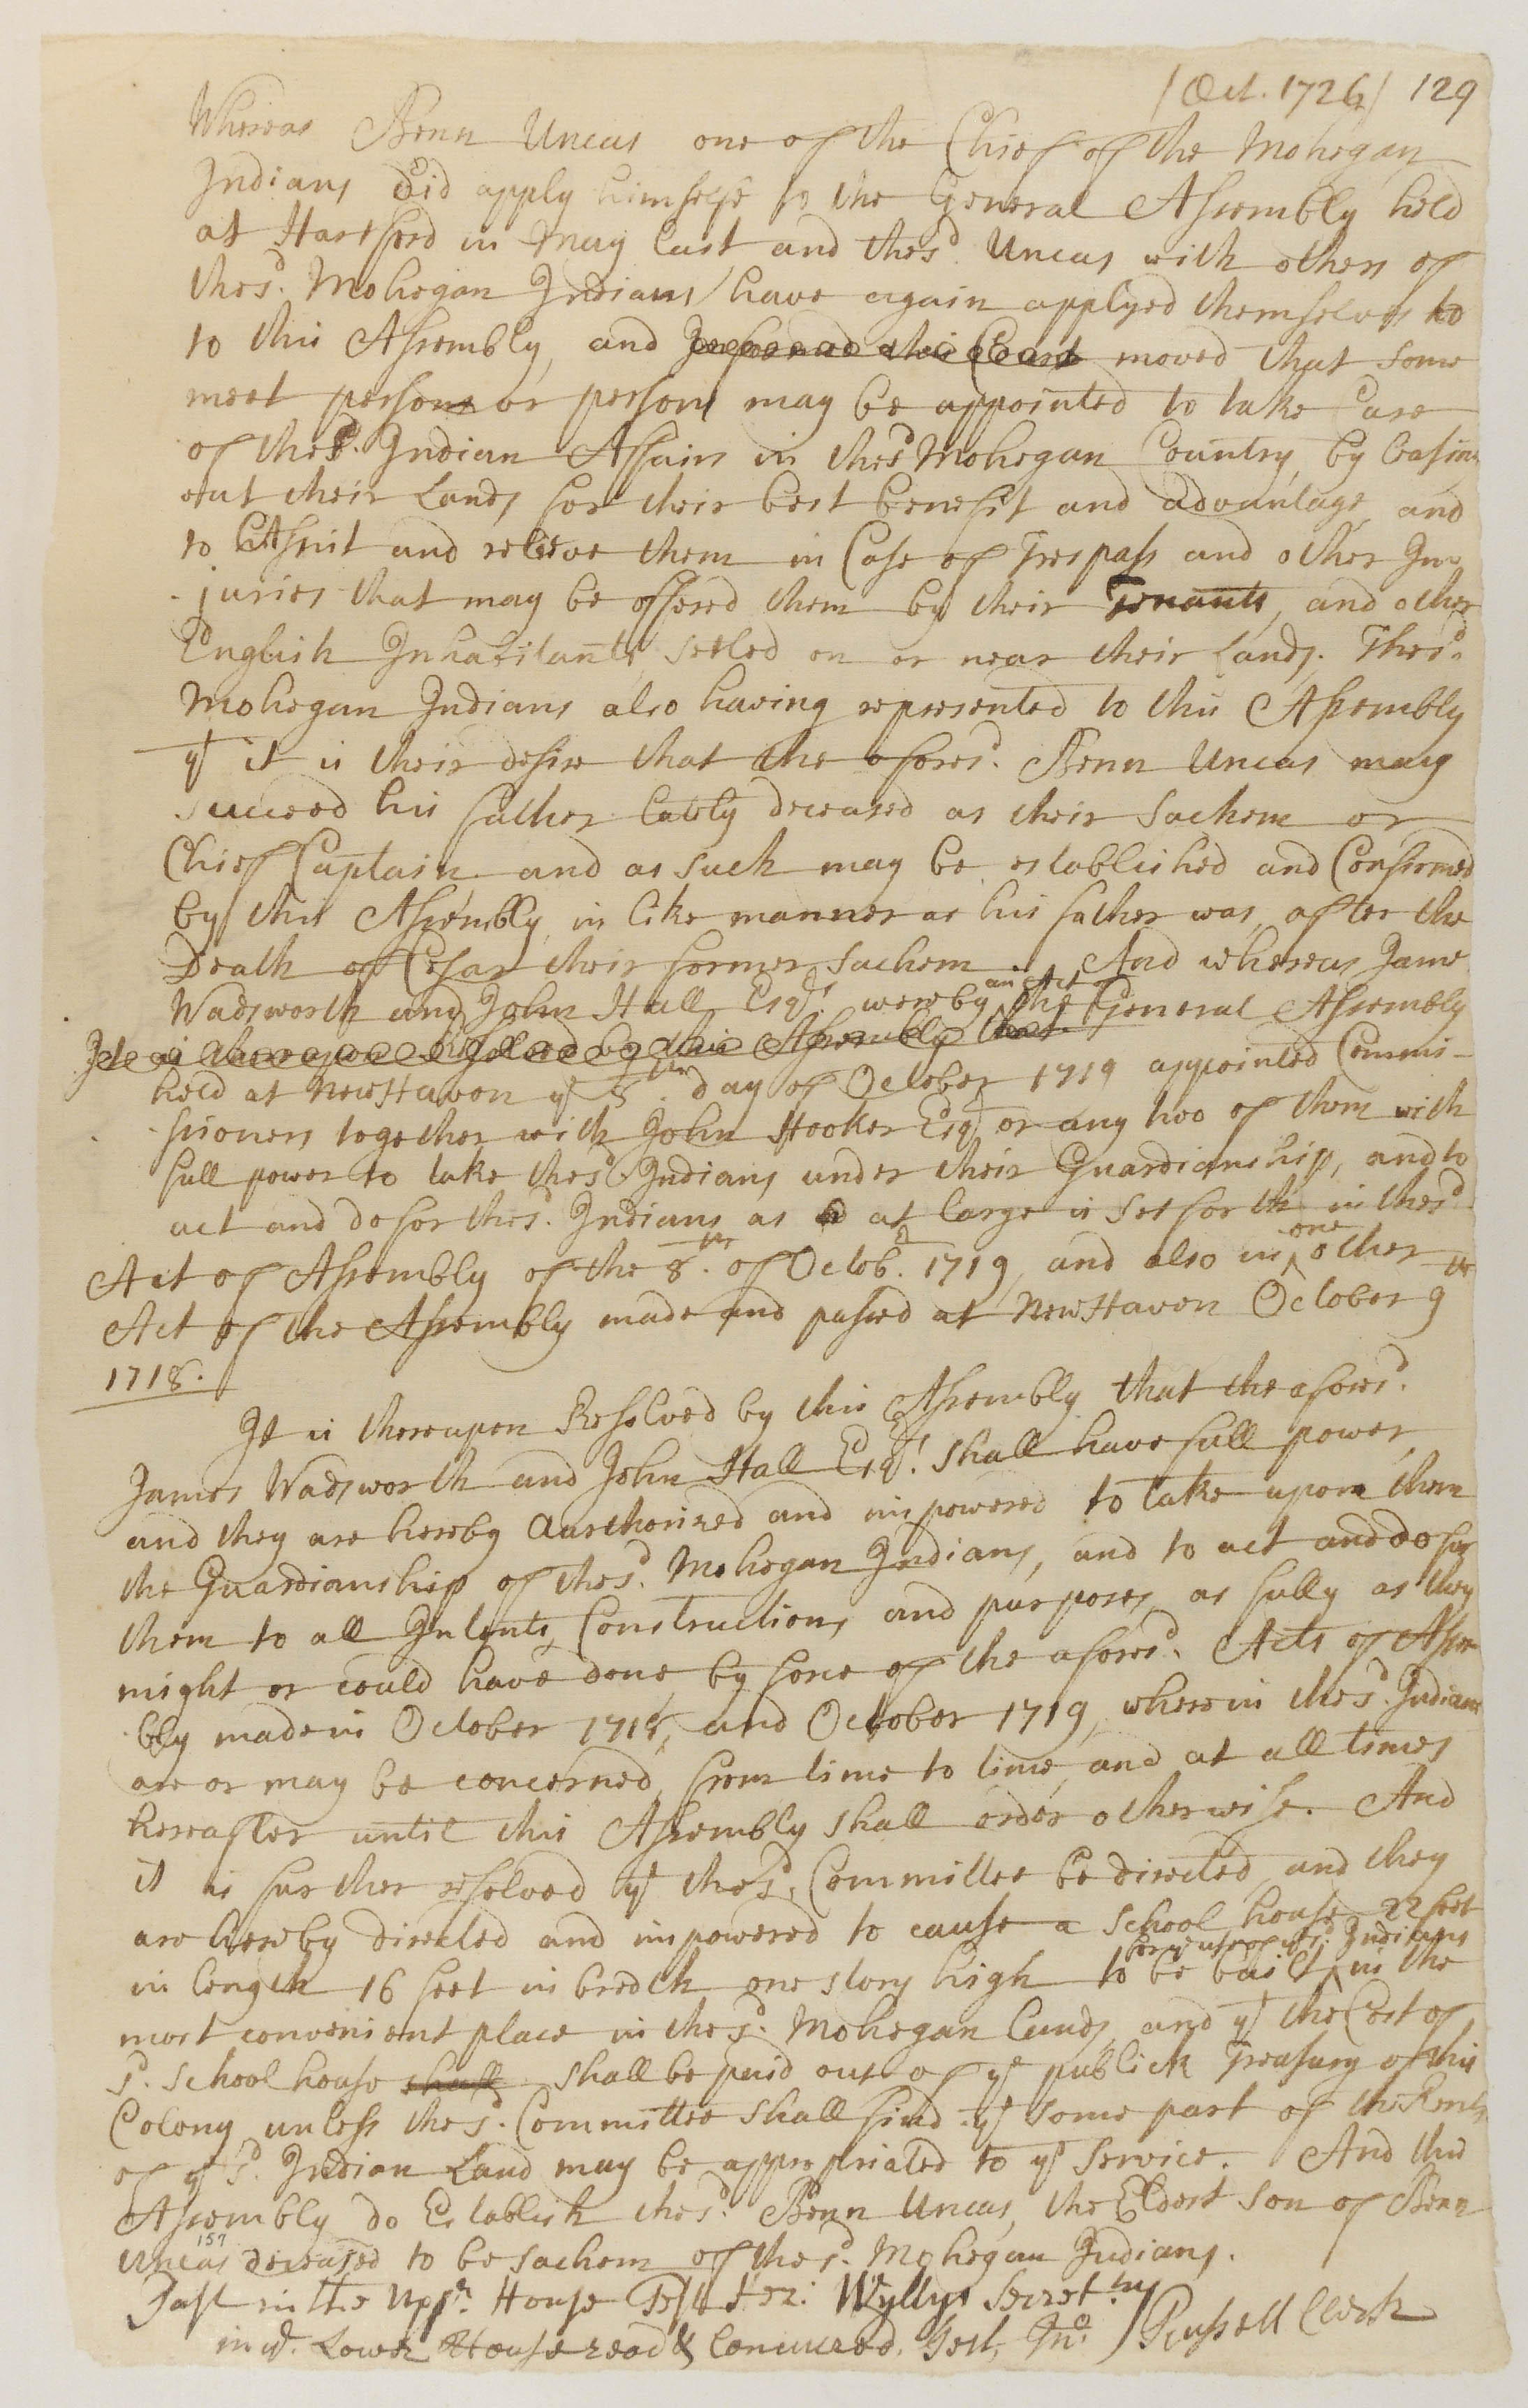 (Oct. 1726) 129
Whereas Benn Uncas one of the Chief of the Mohegan
Indians did apply himselfe to the General Assembly held
at Hartford in may last and the sd. Uncas with others of
the sd. Mohegan Indians have again applyed themselves to
to this Assembly, and Informed this Court moved that some
meet persone or persons may be appointed to take Care
of the sd. Indian Affairs in the sd Mohegan Country, by leasing
out their Lands for their best benefit and advantage, and
to Assist and releeve them in Case of Trespass and other In-
juries that may be offered them by their Tenants, and other
English Inhabitants setled on or near their Lands. The sd.
Mohegan Indians also having represented to this Assembly
yt it is their desire that the afores'd. Benn Uncas may
succeed his father lately deceased as their Sachem or
Chief Captain and as such may be established and Confirmed
by this Assembly, in like manner as his father was, after the
Death of Cesar their former Sachem. And whereas Jame
Wadsworth and John Hall Esqrs. were by an Act of the General Assembly
It is thereupon Resolved by this Assembly that
held at New Haven ye 8th. day of October 1719 appointed Commi-
ssioners together with John Hooker Esqr or any two of them with
full power to take the sd. Indians under their Guardianship, and to
act and do for the sd. Indians as at large is set forth in the sd
Act of Assembly of the 8th. of Octobr. 1719, and also in one other
Act of the Assembly made and passed at New Haven October 9th
1718.
It is thereupon Resolved by this Assembly that the afores'd.
James Wadsworth and John Hall Esqrs. shall have full power,
and they are hereby Aurthorized and impowered to take upon them
the Guardianship of the sd. Mohegan Indians, and to act and do for
them to all Intents, Constructions and purposes, as fully as they
might or could have done by force of the afores'd. Acts of Assem
bly made in October 1718, and October 1719, wherein the sd. Indians
are or may be concerned, from time to time, and at all times
hereafter until this Assembly shall order otherwise. And
it is further resolved yt the sd. Committee be directed, and they
are hereby directed and impowered to cause a School house 22 feet
in length 16 feet in bredth one story high to be built for ye use of ye sd. Indians in the
most convenient place in the sd. Mohegan Lands, and yt the Cost of
sd. School house shall shall be paid out of ye publick Treasury of this
Colony unless the sd. Committee shall find yt some part of the Rents
of ye sd. Indian Land may be appropriated to yt Service. And this
Assembly do Establish the sd. Benn Uncas, the Eldest son of Benn
Uncas 157 deceased to be Sachem of the sd. Mohegan Indians.
Past in the Uppr. House Test Hez: Wyllys Secret.ry
in ye. Lower House read & Concurred. Test, Jno. Russell Clerk